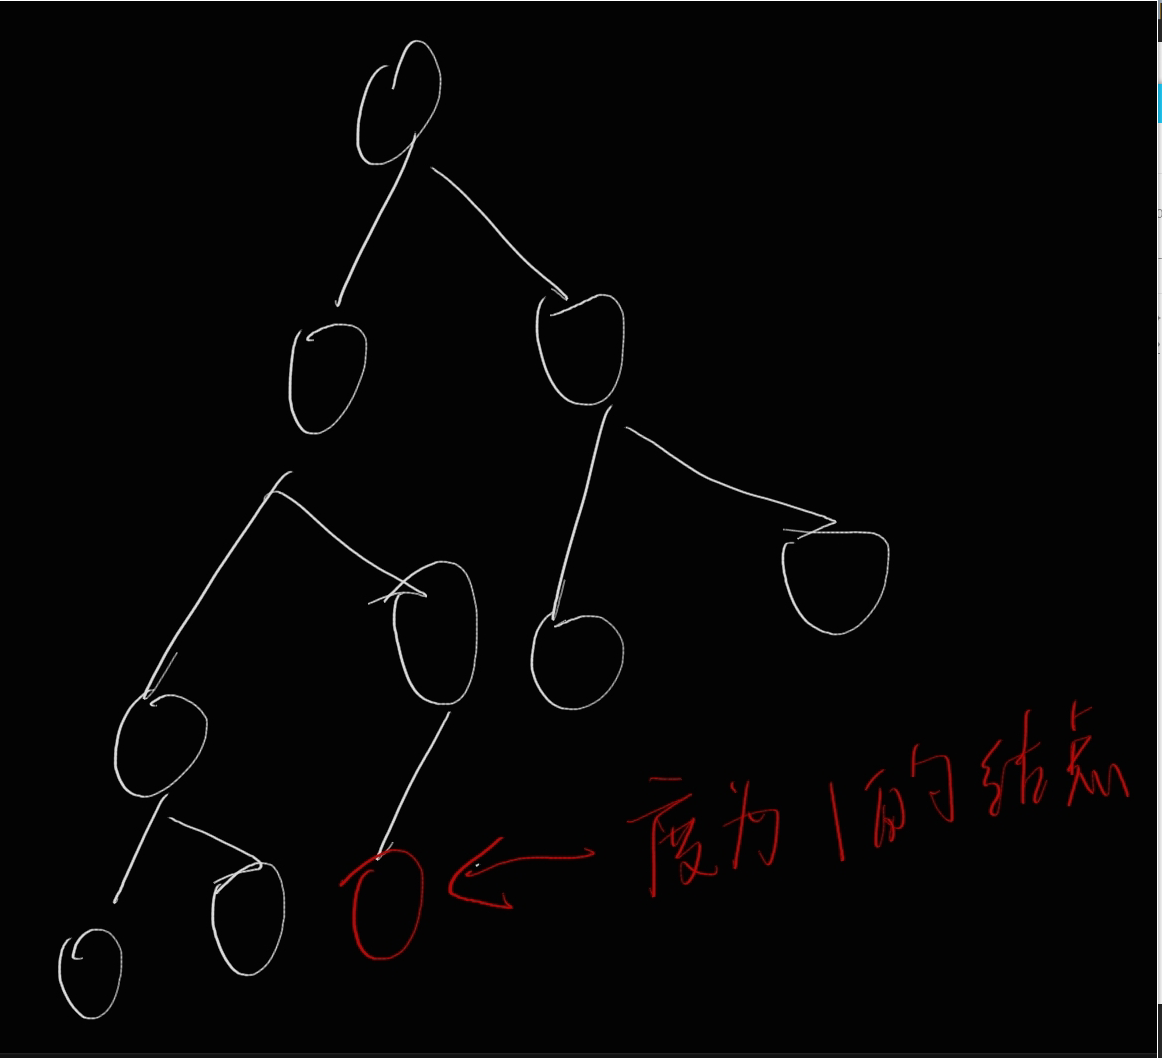 度为1的结点